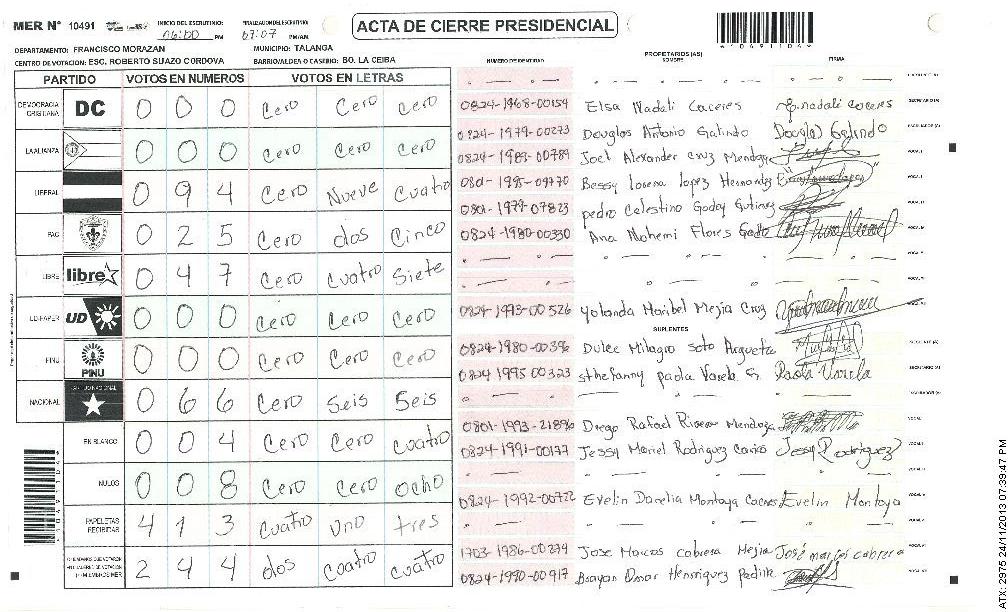 MER N° 10491
INICIO DEL ESCRUTINIO: 06:00 PM
07:07 PM/AM
ACTA DE CIERRE PRESIDENCIAL
* 0 4 9 1 1 0 4 *
DEPARTAMENTO: FRANCISCO MORAZAN MUNICIPIO: TALANGA
CENTRO DE VOTACION: ESC. ROBERTO SUAZO CORDOVA BARRIO/ALDEA O CASERIO: BO. LA CEIBA
PARTIDO VOTOS EN NUMEROS VOTOS EN LETRAS
DEMOCRACIA CRISTIANA DC 0 0 0 Cero Cero Cero
LA ALIANZA 0 0 0 Cero Cero Cero
LIBERAL 0 9 4 Cero Nueve Cuatro
PAC 0 2 5 Cero dos Cinco
LIBRE libre 0 4 7 Cero Cuatro Siete
UD-FAPER UD 0 0 0 Cero Cero Cero
PINU PINU 0 0 0 Cero Cero Cero
NACIONAL 0 6 6 Cero Seis Seis
EN BLANCO 0 0 4 Cero Cero Cuatro
NULOS 0 0 8 Cero Cero Ocho
PAPELETAS RECIBIDAS 4 1 3 Cuatro uno tres
2 4 4 dos Cuatro cuatro
NUMERO DE IDENTIDAD PROPIETARIOS (AS) NOMBRE FIRMA
0824-1968-00154 Elsa Nadali Caceres E. nadali caceres
0824-1979-00273 Douglas Antonio Galindo Douglas Galindo
0824-1983-00789 Joel Alexander Cruz Mendoza
0801-1985-09770 Bessy Lorena Lopez Hernandez
0801-1979-07823 pedro Celestino Godoy Gutierrez
0824-1980-00330 Ana Nohemi Flores
0824-1993-00526 Yolanda Maribel Mejia Cruz
SUPLENTES
0824-1980-00396 Dulce Milagro Soto Argueta
0824-1995-00323 sthefanny paola Varela Paola Varela
0801-1993-21896 Diego Rafael Mendoza
0824-1991-00177 Jessy Mariel Rodriguez Jessy Rodriguez
0824-1992-00722 Evelin Danelia Montoya Caceres Evelin Montoya
1703-1986-00279 Jose Marcos cabrera Mejia José marcos cabrera
0824-1990-00917 Brayan Omar Henriquez
ATX: 2975 24/11/2013 07:39:47 PM